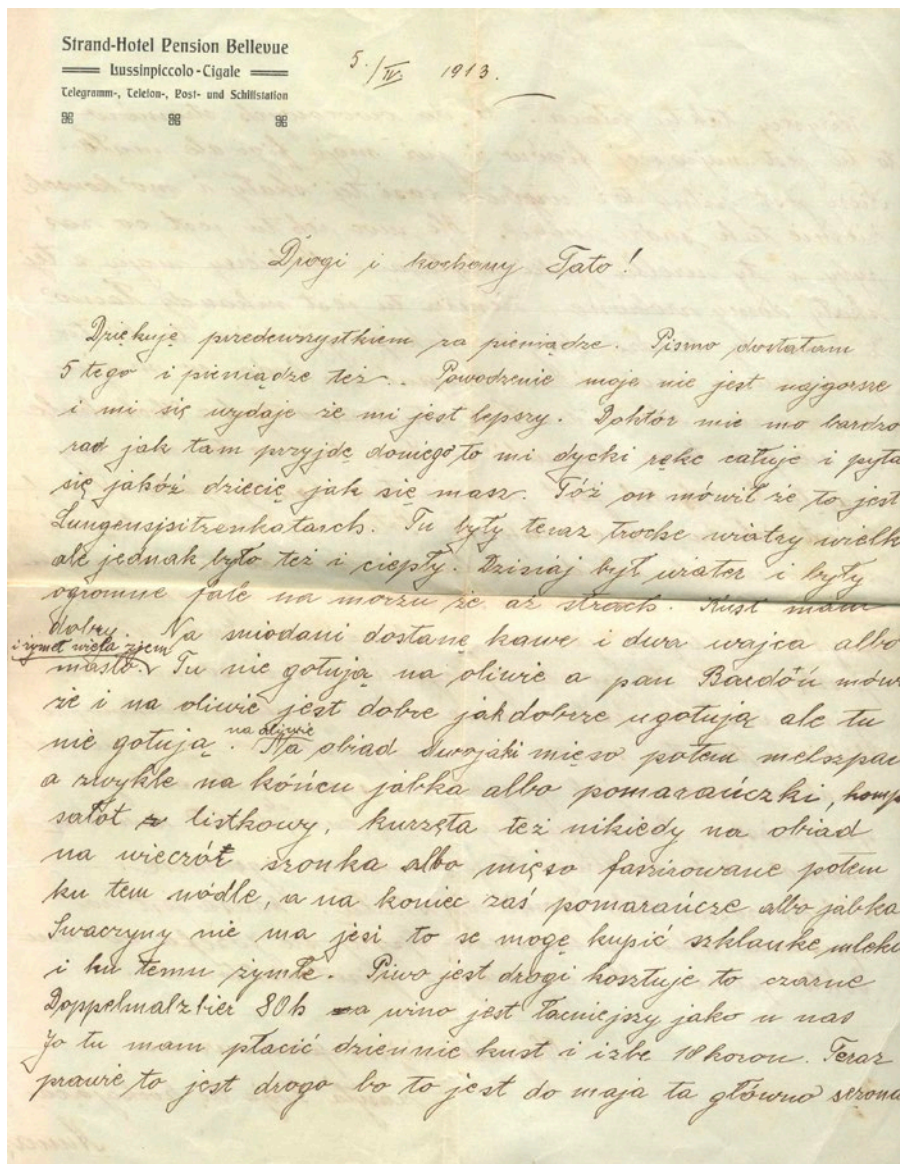 Strand-Hotel Pension Bellevue
Lussinpiccolo-Cigale
Telegramm-, Telefon-, Post- und Schiffstation
5./IV. 1913.
Drogi i kochany Tato!
Dziękuję przedewszystkiem za pieniądze. Pismo dostałam
5 tego i pieniądze też.. Powodzenie moje nie jest najgorsze
i mi się wydaje że mi jest lepszy. Doktór mie mo bardzo
rad jak tam przyjdę doniego to mi dycki rękę całuje i pyta
się jakóż dziecię jak się masz. Tóż on mówił że to jest
Lungenspitzenkatarh. Tu były teraz trochę wiatry wielk
ale jednak było też i ciepły. Dzisiaj był wiater i były
ogromne fale na morzu że aż strach. Kust mam
dobry Na śniodani dostanę kawę i dwa wajca albo
i żymeł wiela zjem
masło. Tu nie gotują na oliwie a pan Bardóń mówi
że i na oliwie jest dobre jak dobrze ugotują ale tu
nie gotują na oliwie. Na obiad dwojaki mięso potem melszpai
a zwykle na kóńcu jabka albo pomarańczki, komp
sałot listkowy, kurzęta też nikiedy na obiad
na wieczór szonka albo mięso faszirowane potem
ku tem nódle, a na koniec zaś pomarańcze albo jabka
Swaczyny nie ma jeśi to se mogę kupić szklankę mleka
i ku temu żymłe. Piwo jest drogi kosztuje to czarne
Doppelmalzbier 80h a wino jest łacniejszy jako u nas
Jo tu mam płacić dziennie kust i izbe 10 koron. Teraz
prawie to jest drogo bo to jest do maja ta główno sezona